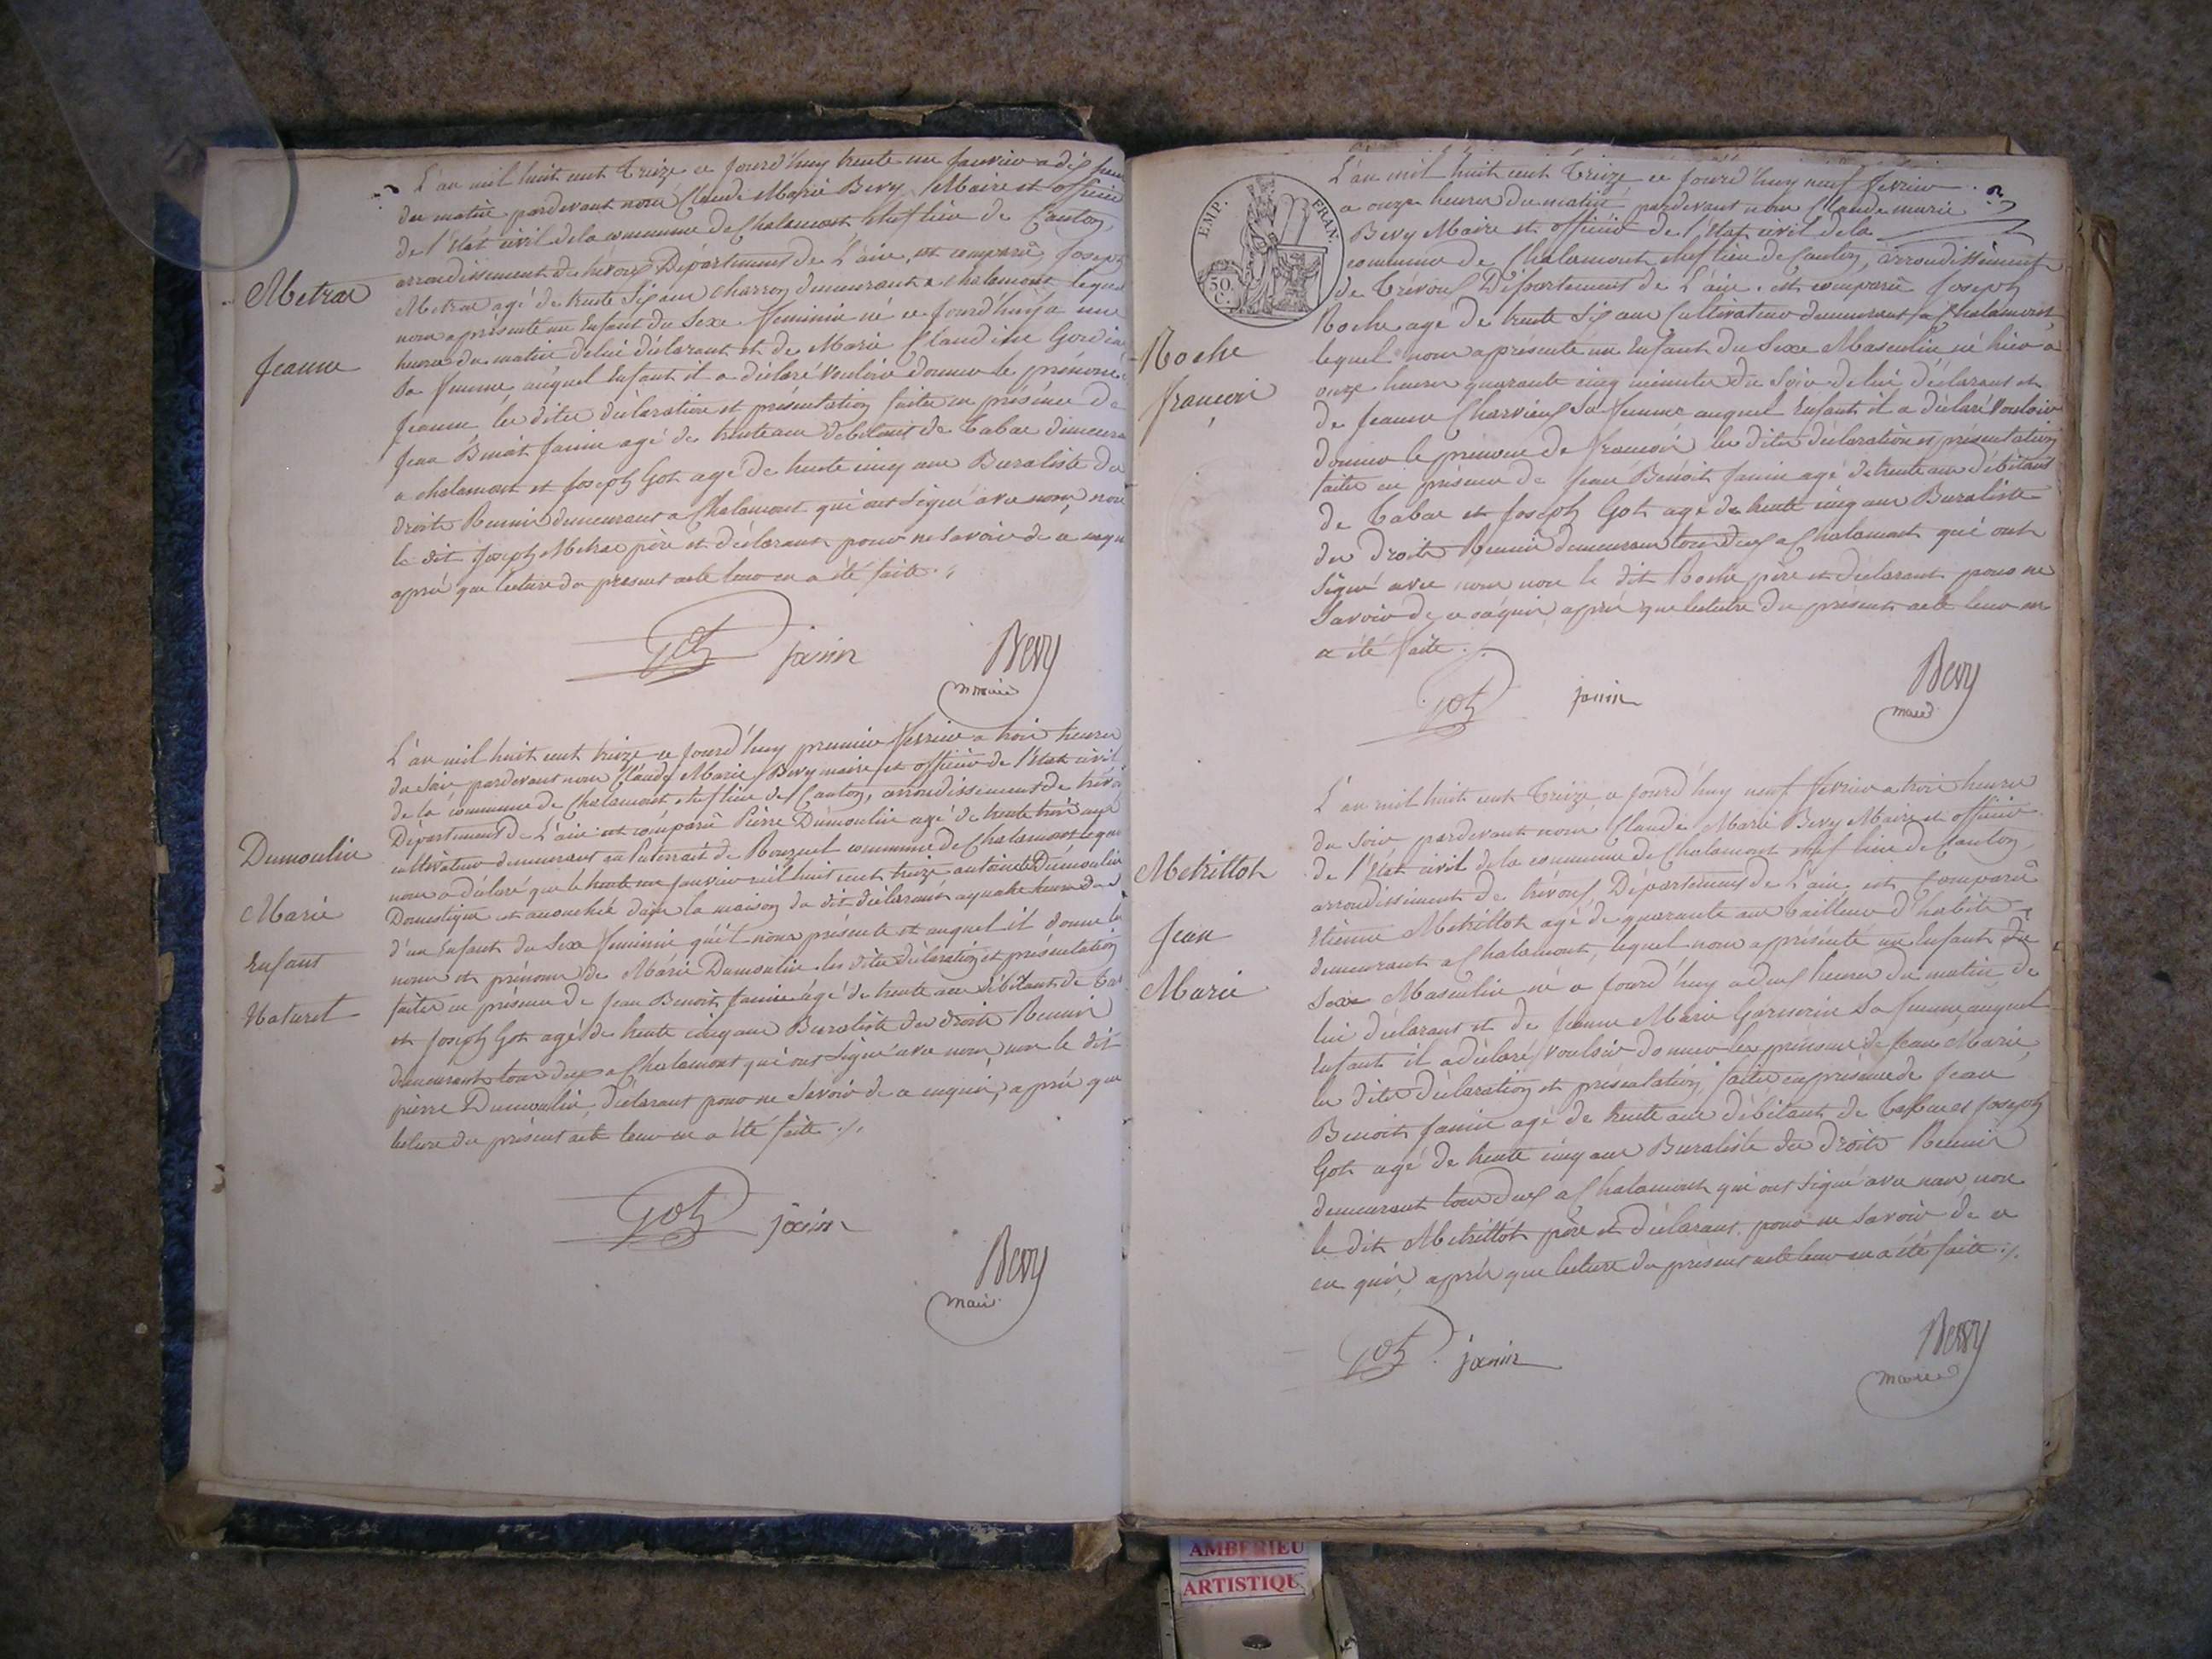 L'an mil huit cent treize ce jourd'huy trente un janvier a dix heures
du matin pardevant nous Claude Marie Bevy Maire et officier
de l'Etat civil de la commune de Chalamont chef lieu de Canton,
arrondissement de trévoux Département de L'ain, est comparu Joseph
Metrae
Metrae agé de trente six ans charron demeurant a chalamont lequel
nous a présenté un Enfant du Sexe feminin né ce jourd'huy a une
heure du matin de lui déclarant et de Marie Claudine
Jeanne
Sa femme auquel Enfant il a déclaré vouloir donner le prénom de
Jeanne les dites déclaration et présentation faites en présence de
Jean Benoit Janin agé de trente ans débitant de tabac demeurant
a chalamont et Joseph Got agé de trente cinq ans Buraliste des
droits Reunis demeurant a Chalamont qui ont signé avec nous, non
le dit Joseph Metrae père et déclarant pour ne savoir de ce enquis
après que lecture du present acte leur en a été faite ./.
Got janin Bevy
maire
L'an mil huit cent treize ce jourd'huy premier fevrier a trois heures
du soir pardevant nous Claude Marie Bevy maire et officier de l'Etat civil
de la commune de Chalamont chef lieu de Canton, arrondissement de trévoux
Département de L'ain est comparu Pierre Dumoulin agé de trente trois ans
Dumoulin
cultivateur demeurant au de commune de Chalamont lequel
nous a déclaré que le trente un janvier mil huit cent treize antoinette Dumoulin
Domestique est accouchée dans la maison du dit déclarant a quatre heures du
Marie
d'un Enfant du Sexe feminin qu'il nous présente et auquel il donne les
Enfant
nom et prénom de Marie Dumoulin les dites déclaration et présentation
faites en présence de Jean Benoit Janin agé de trente ans débitant de tabac
Naturel
et Joseph Got agé de trente cinq ans Buraliste des droits Reunis
demeurant tous deux a Chalamont qui ont signé avec nous, non le dit
pierre Dumoulin, déclarant pour ne savoir de ce enquis, après que
lecture du présent acte leur en a été faite ./.
Got janin
Bevy
maire
EMP. FRAN.
50. C.
L'an mil huit cent treize ce jourd'huy neuf fevrier
a onze heures du matin pardevant nous Claude marie
Bevy Maire et officier de l'Etat civil de la
commune de Chalamont chef lieu de Canton, arrondissement
de Trévoux Département de L'ain. est comparu Joseph
Roche agé de trente six ans Cultivateur demeurant a Chalamont
Roche
lequel nous a présenté un Enfant du Sexe Masculin né hier a
onze heures quarante cinq minutes du soir de lui déclarant et
françois
de Jeanne Charvieux Sa femme auquel Enfant il a déclaré vouloir
donner le prénom de françois les dites déclaration et présentation
faites en présence de Jean Benoit Janin agé de trente ans débitant
de Tabac et Joseph Got agé de trente cinq ans Buraliste
des droits Reunis demeurant tous deux a Chalamont qui ont
signé avec nous non le dit Roche père et déclarant pour ne
savoir de ce enquis après que lecture du présent acte leur en
a été faite ./.
Got janin Bevy
maire
L'an mil huit cent treize ce jourd'huy neuf fevrier a trois heures
du soir pardevant nous Claude Marie Bevy Maire et officier
Metrillot
de l'Etat civil de la commune de Chalamont chef lieu de Canton,
arrondissement de trévoux, Département de L'ain, est comparu
Etienne Metrillot agé de quarante ans tailleur d'habits
Jean
demeurant a Chalamont, lequel nous a présenté un Enfant du
Marie
Sexe Masculin né ce jourd'huy a deux heures du matin de
lui déclarant et de Jeanne Marie Sa femme, auquel
Enfant il a déclaré vouloir donner les prénoms de Jean Marie
les dites déclaration et présentation, faites en présence de Jean
Benoit Janin agé de trente ans débitant de tabac et Joseph
Got agé de trente cinq ans Buraliste des droits Reunis
demeurant tous deux a Chalamont qui ont signé avec nous, non
le dit Metrillot père et déclarant pour ne savoir de ce
en quis, après que lecture du présent acte leur en a été faite ./.
Got janin Bevy
maire
AMBERIEU
ARTISTIQU